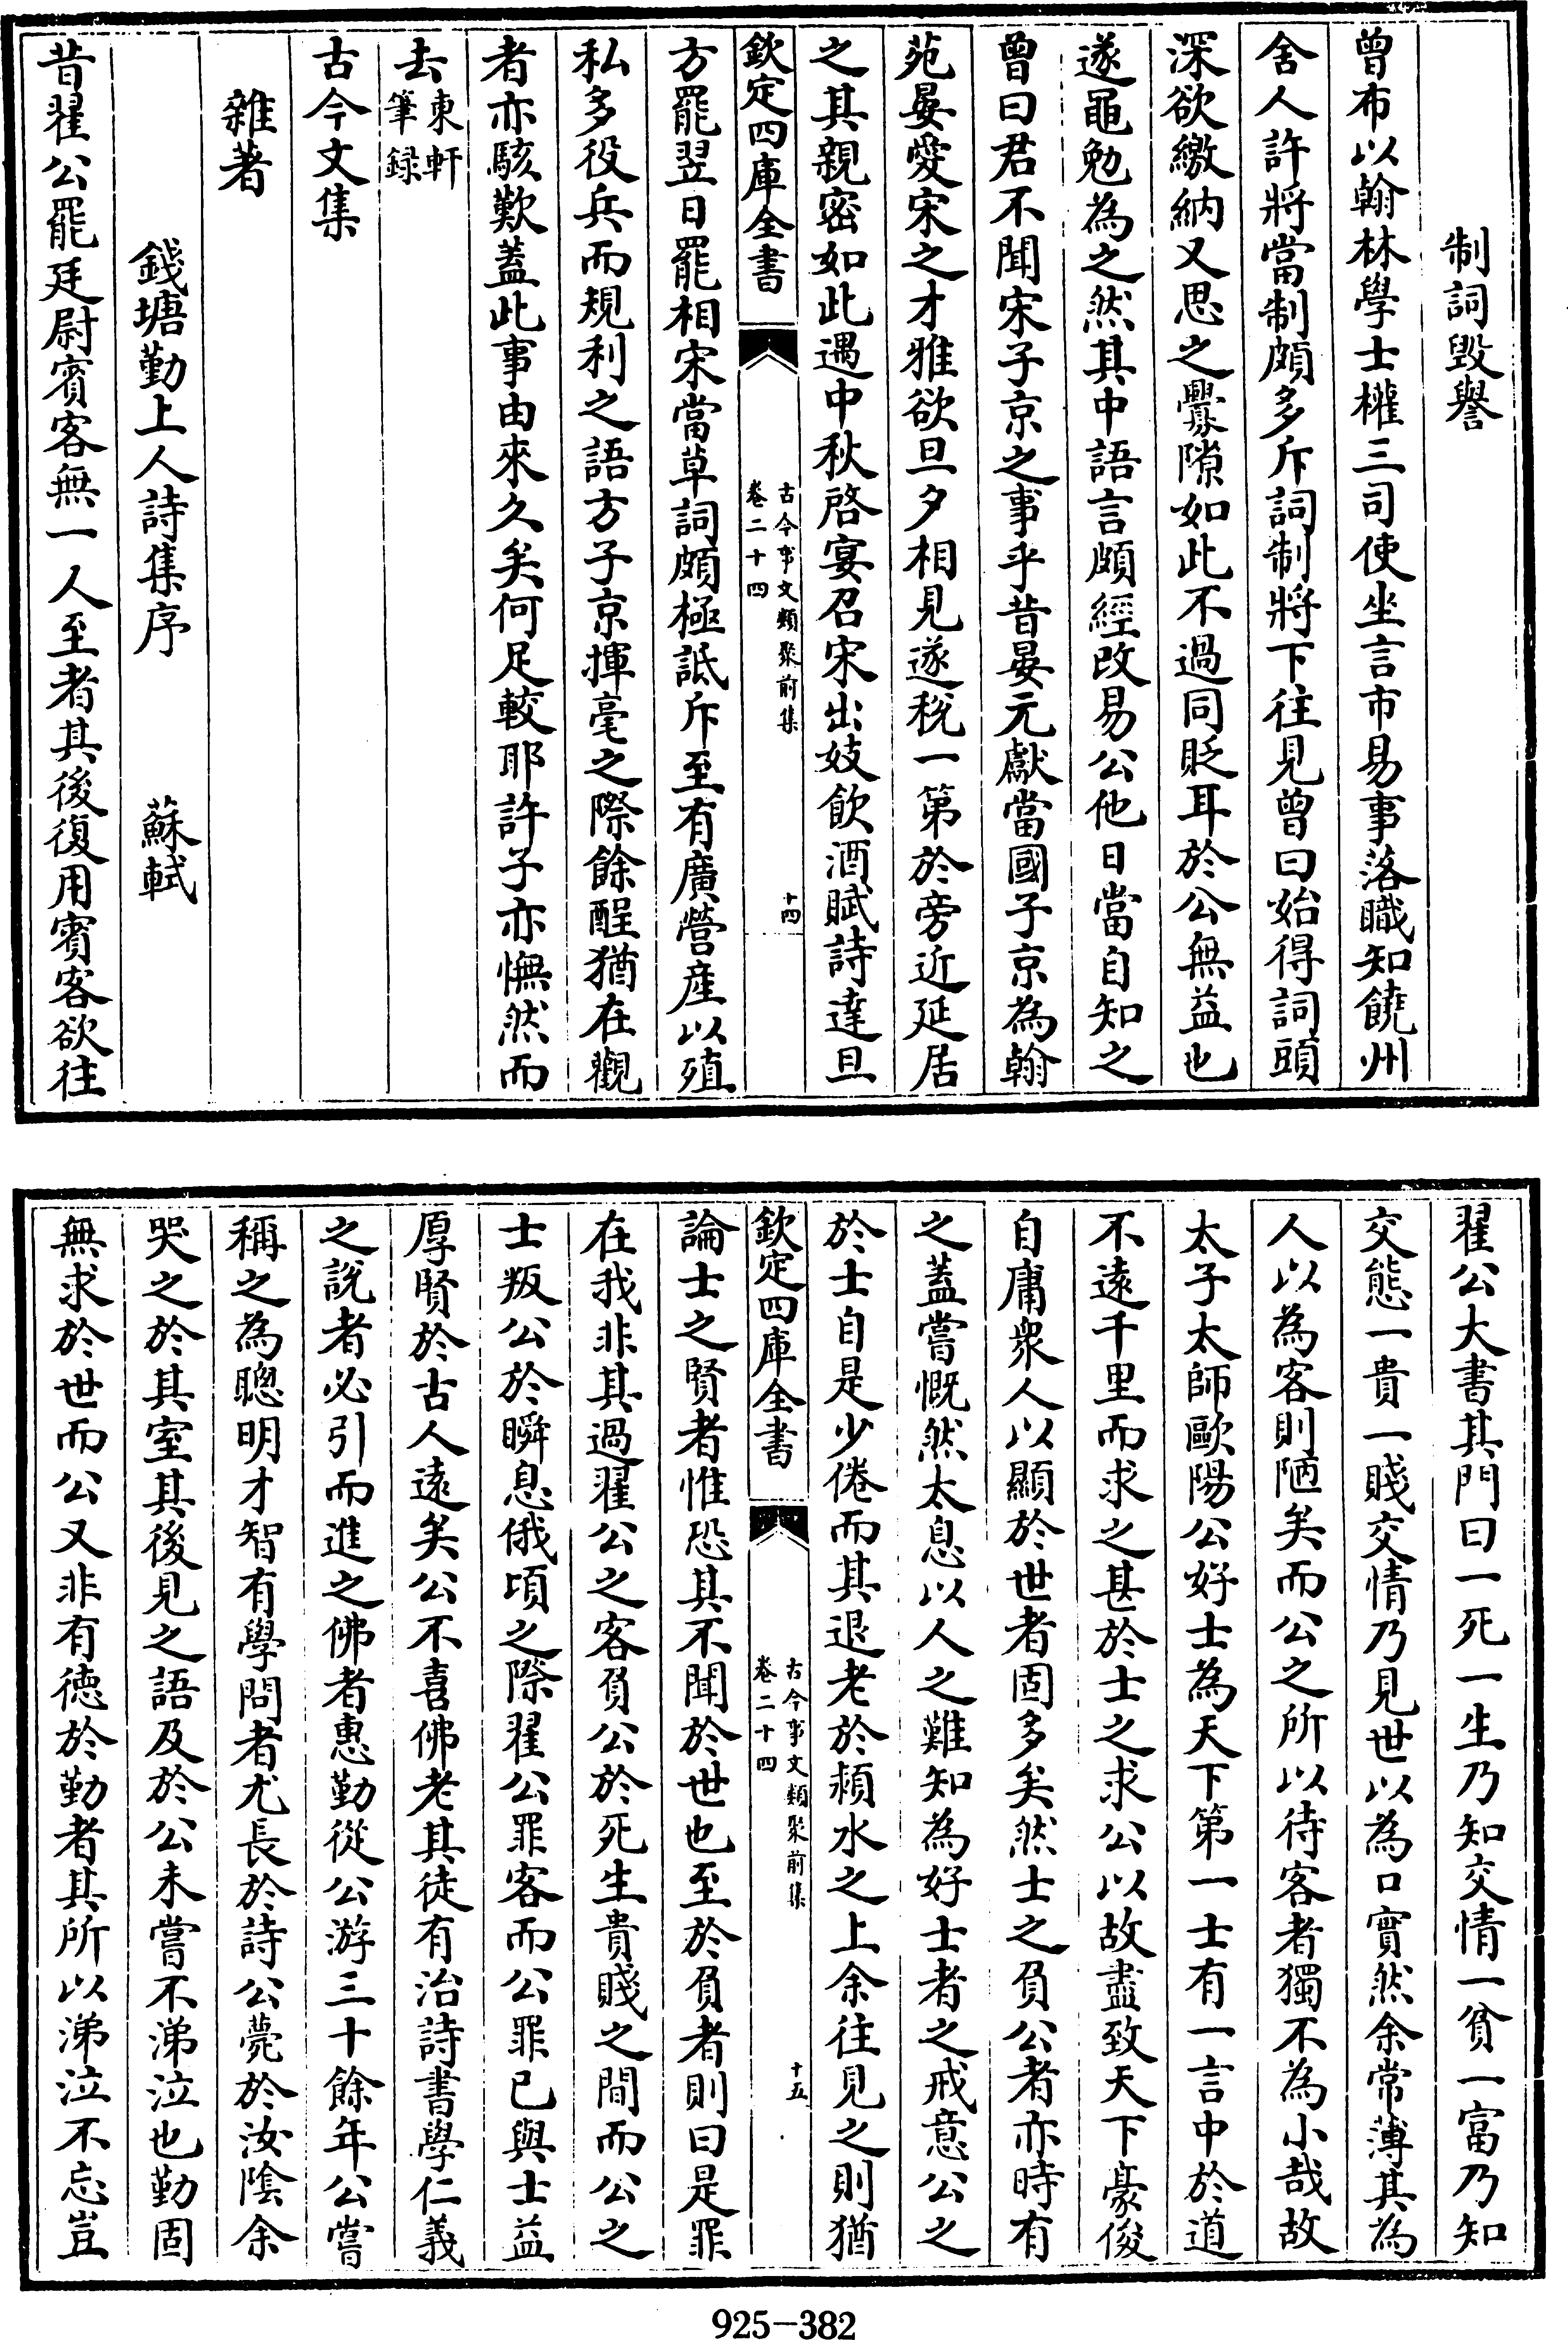 制詞毀譽
曾布以翰林學士權三司使坐言市易事落職知饒州
舍人許將當制頗多斥詞制將下往見曾曰始得詞頭
深欲繳納又思之釁隙如此不過同貶耳於公無益也
遂黽勉為之然其中語言頗經改易公他日當自知之
曾曰君不聞宋子京之事乎昔晏元獻當國子京為翰
苑晏愛宋之才雅欲旦夕相見遂稅一第於旁近延居
之其親密如此遇中秋啓宴召宋出妓飲酒賦詩達旦
欽定四庫全書
古今事文類聚前集
卷二十四
十四
方罷翌日罷相宋當草詞頗極詆斥至有廣營産以殖
私多役兵而規利之語方子京揮毫之際餘酲猶在觀
者亦駭歎蓋此事由來久矣何足較耶許子亦憮然而
去東軒
筆録
古今文集
雜著
錢塘勤上人詩集序 蘇軾
昔翟公罷廷尉賓客無一人至者其後復用賓客欲往
翟公大書其門曰一死一生乃知交情一貧一富乃知
交態一貴一賤交情乃見世以為口實然余常薄其為
人以為客則陋矣而公之所以待客者獨不為小哉故
太子太師歐陽公好士為天下第一士有一言中於道
不遠千里而求之甚於士之求公以故盡致天下豪俊
自庸衆人以顯於世者固多矣然士之負公者亦時有
之蓋嘗慨然太息以人之難知為好士者之戒意公之
於士自是少倦而其退老於頴水之上余往見之則猶
欽定四庫全書
古今事文類聚前集
卷二十四
十五
論士之賢者惟恐其不聞於世也至於負者則曰是罪
在我非其過翟公之客負公於死生貴賤之間而公之
士叛公於瞬息俄頃之際翟公罪客而公罪已與士益
厚賢於古人遠矣公不喜佛老其徒有治詩書學仁義
之說者必引而進之佛者惠勤從公游三十餘年公嘗
稱之為聰明才智有學問者尤長於詩公薨於汝陰余
哭之於其室其後見之語及於公未嘗不涕泣也勤固
無求於世而公又非有徳於勤者其所以涕泣不忘豈
925-382